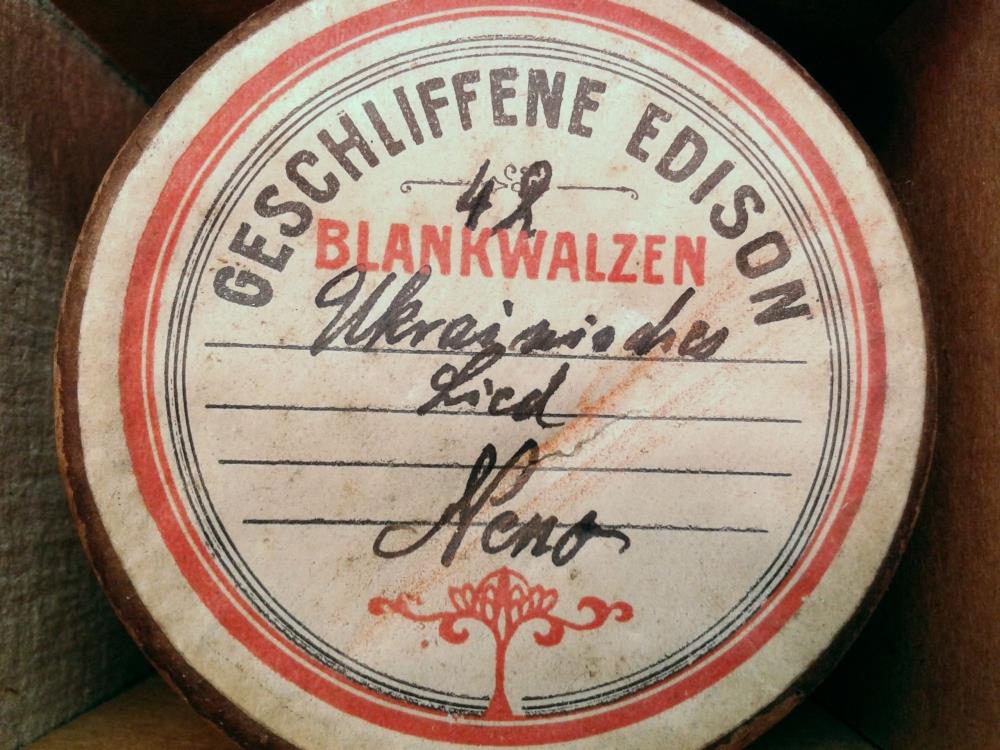 GESCHLIFFENE EDISON
42
BLANKWALZEN
Ukrainisches
Lied
Neno